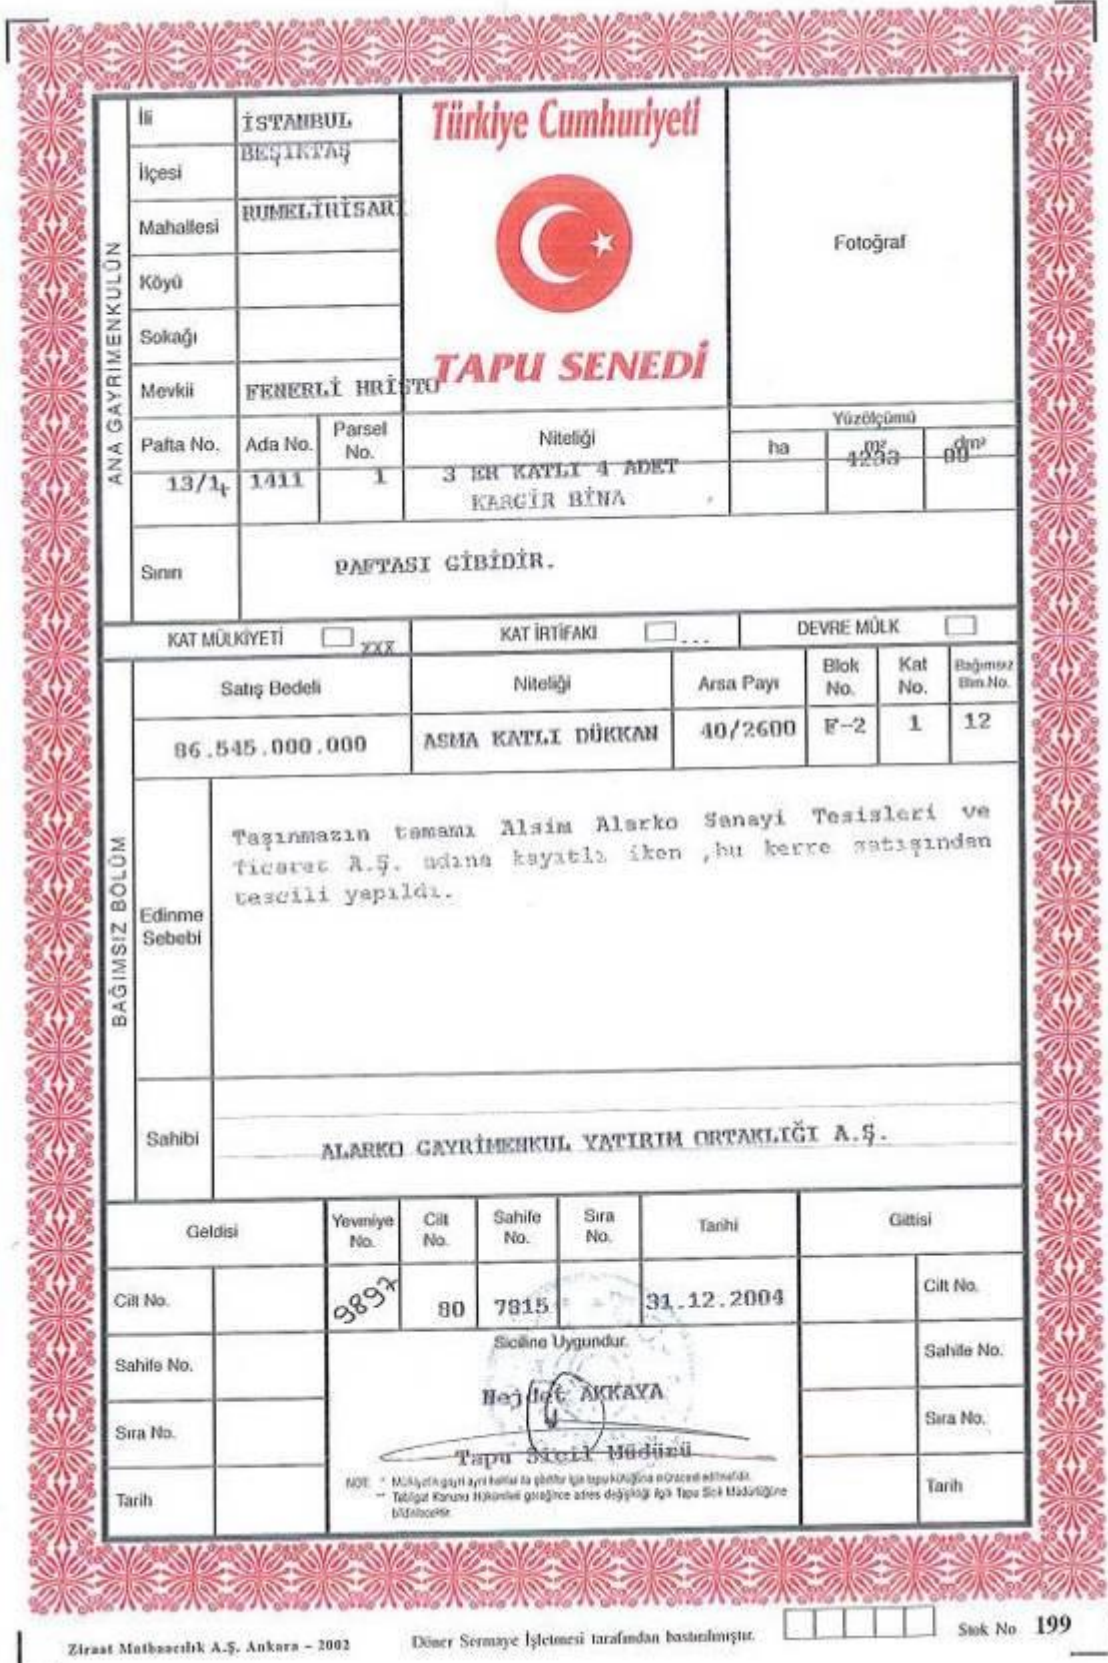 İli İSTANBUL
Türkiye Cumhuriyeti
İlçesi BEŞİKTAŞ
Mahallesi RUMELİHİSARI
Fotoğraf
Köyü
Sokağı
TAPU SENEDİ
Mevkii FENERLİ HRİSTO
ANA GAYRIMENKULÜN
Pafta No. Ada No. Parsel No. Niteliği Yüzölçümü
ha m² dm²
13/1 1411 1 3 ER KATLI 4 ADET
KARGİR BİNA
Sınırı PAFTASI GİBİDİR.
KAT MÜLKİYETİ xxx KAT İRTİFAKI ... DEVRE MÜLK
Satış Bedeli Niteliği Arsa Payı Blok No. Kat No. Bağımsız Blm.No.
86.545.000.000 ASMA KATLI DÜKKAN 40/2600 F-2 1 12
BAĞIMSIZ BÖLÜM
Edinme Sebebi
Taşınmazın tamamı Alsim Alarko Sanayi Tesisleri ve
Ticaret A.Ş. adına kayatlı iken ,bu kerre satışından
tescili yapıldı.
Sahibi ALARKO GAYRİMENKUL YATIRIM ORTAKLIĞI A.Ş.
Geldisi Yevmiye No. Cilt No. Sahife No. Sıra No. Tarihi Gittisi
Cilt No. 9897 80 7815 31.12.2004 Cilt No.
Siciline Uygundur.
Sahife No. Sahife No.
Nejdet AKKAYA
Sıra No. Sıra No.
Tapu Sicil Müdürü
NOT: * Mülkiyetin gayri ayni haklar da görülür için tapu kütüğüne müracaat edilmelidir.
** Tebligat Kanunu Hükümleri gereğince adres değişikliği ilgili Tapu Sicil Müdürlüğüne
bildirilecektir.
Tarih Tarih
Ziraat Matbaacılık A.Ş. Ankara - 2002 Döner Sermaye İşletmesi tarafından bastırılmıştır. Stok No 199